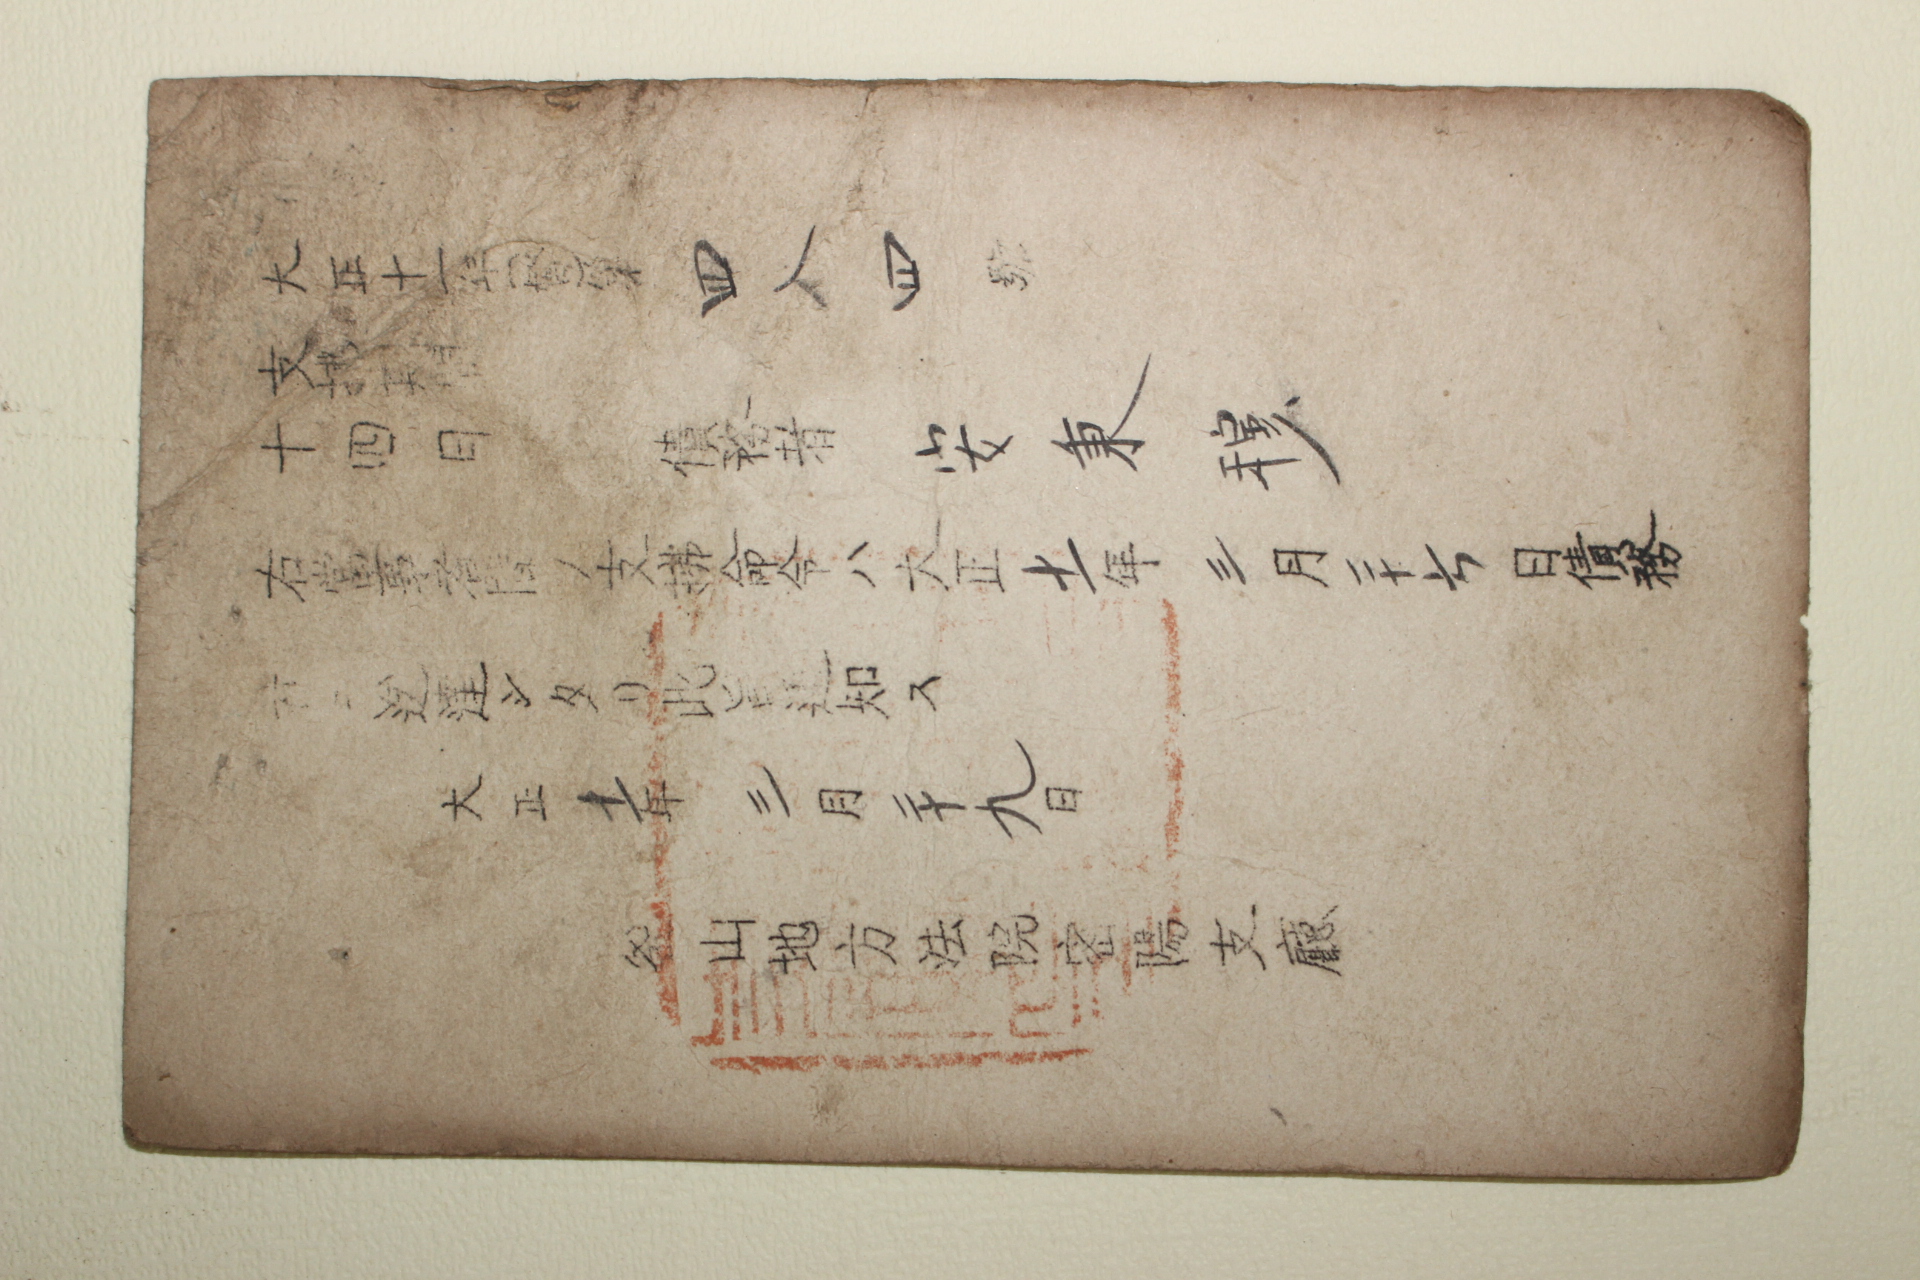 大正十一年 第四八四號
支拂
十四日 債務者 安
右當事者間ノ支拂命令ハ大正十一年三月二十 日債務
者ニ送達シタリ此旨通知ス
大正十一年三月二十九日
釜山地方法院密陽支廳